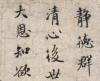 静德群
清心後世
大恩知欲